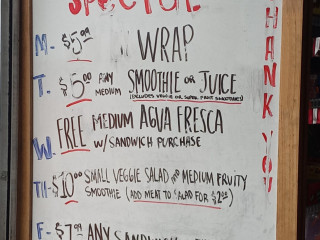 SPECIAL
M- $5.99 WRAP
T. $5.00 ANY MEDIUM SMOOTHIE OR JUICE
(EXCLUDES VEGGIE OR SUPER FRUIT SMOOTHIES)
W. FREE MEDIUM AGUA FRESCA
W/SANDWICH PURCHASE
TH- $10.00 SMALL VEGGIE SALAD AND MEDIUM FRUITY
SMOOTHIE (ADD MEAT TO SALAD FOR $2.50)
F- $7.00 ANY SANDWICH
THANK YOU